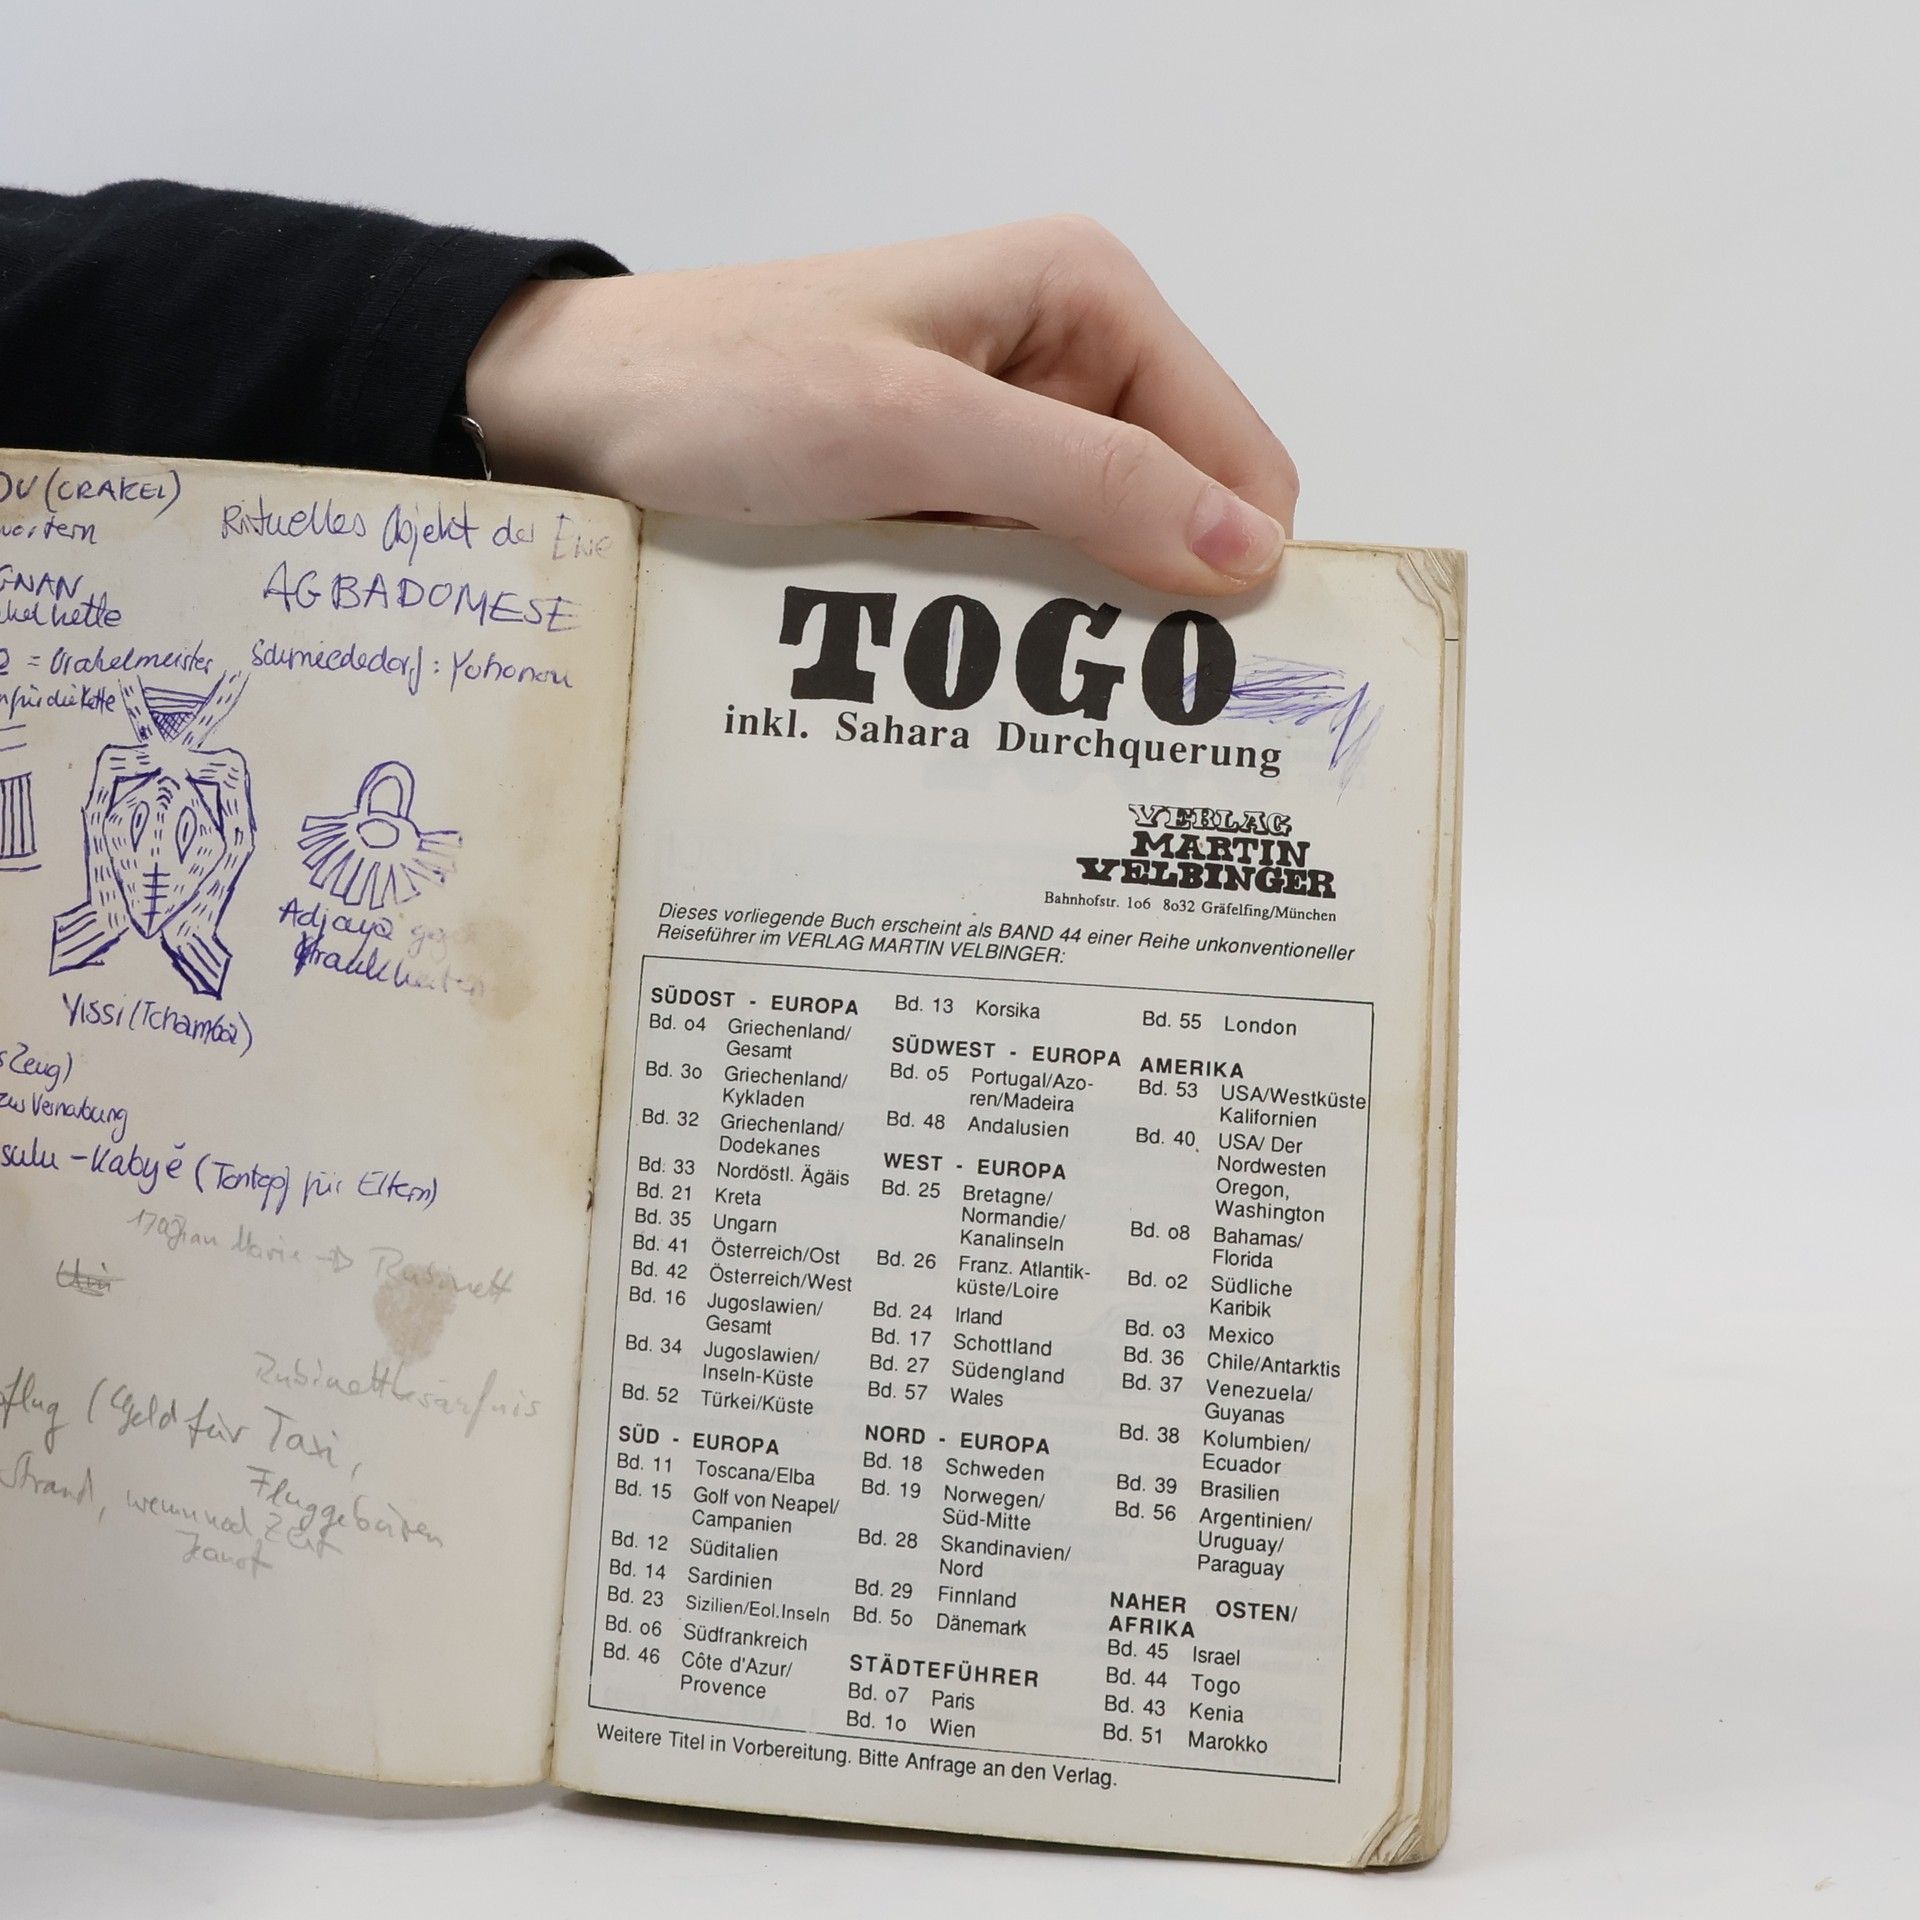 OU (ORAKEL)
Rituelles Objekt der Ewe
GNAN
AGBADOMESE
= Orakelmeister
Schmiededorf: Yohonou
für die Kette
Adjaya gegen
Krankheiten
Yissi (Tchamba)
Zeug)
zur Vernarbung
sulu - Kabyé (Tontopf für Eltern)
Marie → Rubinett
flug (Geld für Taxi,
Fluggebühren
Strand,
TOGO
inkl. Sahara Durchquerung
VERLAG
MARTIN
VELBINGER
Bahnhofstr. 1o6 8o32 Gräfelfing/München
Dieses vorliegende Buch erscheint als BAND 44 einer Reihe unkonventioneller
Reiseführer im VERLAG MARTIN VELBINGER:
SÜDOST - EUROPA
Bd. o4 Griechenland/
Gesamt
Bd. 3o Griechenland/
Kykladen
Bd. 32 Griechenland/
Dodekanes
Bd. 33 Nordöstl. Ägäis
Bd. 21 Kreta
Bd. 35 Ungarn
Bd. 41 Österreich/Ost
Bd. 42 Österreich/West
Bd. 16 Jugoslawien/
Gesamt
Bd. 34 Jugoslawien/
Inseln-Küste
Bd. 52 Türkei/Küste
SÜD - EUROPA
Bd. 11 Toscana/Elba
Bd. 15 Golf von Neapel/
Campanien
Bd. 12 Süditalien
Bd. 14 Sardinien
Bd. 23 Sizilien/Eol.Inseln
Bd. o6 Südfrankreich
Bd. 46 Côte d'Azur/
Provence
Bd. 13 Korsika
SÜDWEST - EUROPA
Bd. o5 Portugal/Azo-
ren/Madeira
Bd. 48 Andalusien
WEST - EUROPA
Bd. 25 Bretagne/
Normandie/
Kanalinseln
Bd. 26 Franz. Atlantik-
küste/Loire
Bd. 24 Irland
Bd. 17 Schottland
Bd. 27 Südengland
Bd. 57 Wales
NORD - EUROPA
Bd. 18 Schweden
Bd. 19 Norwegen/
Süd-Mitte
Bd. 28 Skandinavien/
Nord
Bd. 29 Finnland
Bd. 5o Dänemark
STÄDTEFÜHRER
Bd. o7 Paris
Bd. 1o Wien
Bd. 55 London
AMERIKA
Bd. 53 USA/Westküste
Kalifornien
Bd. 40 USA/ Der
Nordwesten
Oregon,
Washington
Bd. o8 Bahamas/
Florida
Bd. o2 Südliche
Karibik
Bd. o3 Mexico
Bd. 36 Chile/Antarktis
Bd. 37 Venezuela/
Guyanas
Bd. 38 Kolumbien/
Ecuador
Bd. 39 Brasilien
Bd. 56 Argentinien/
Uruguay/
Paraguay
NAHER OSTEN/
AFRIKA
Bd. 45 Israel
Bd. 44 Togo
Bd. 43 Kenia
Bd. 51 Marokko
Weitere Titel in Vorbereitung. Bitte Anfrage an den Verlag.